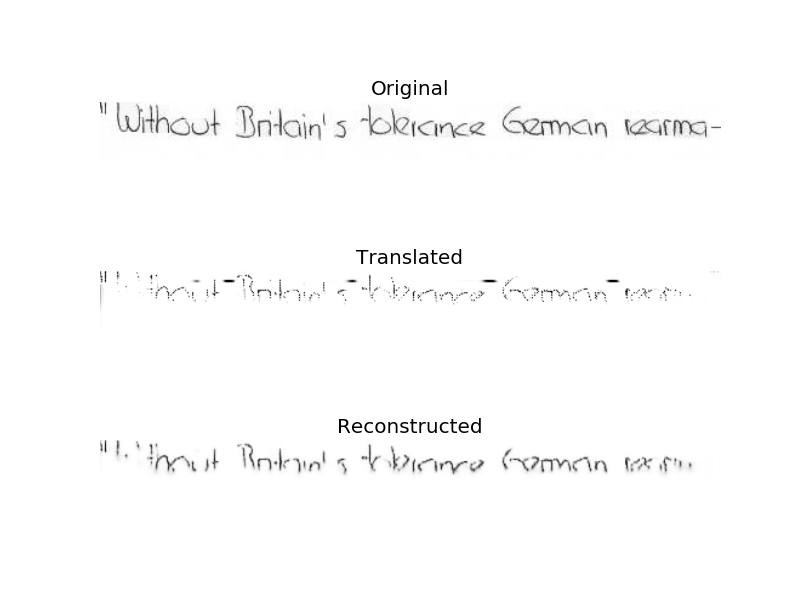 Original
"Without Britain's tolerance German rearma-
Translated
"Without Britain's tolerance German
Reconstructed
"Without Britain's tolerance German